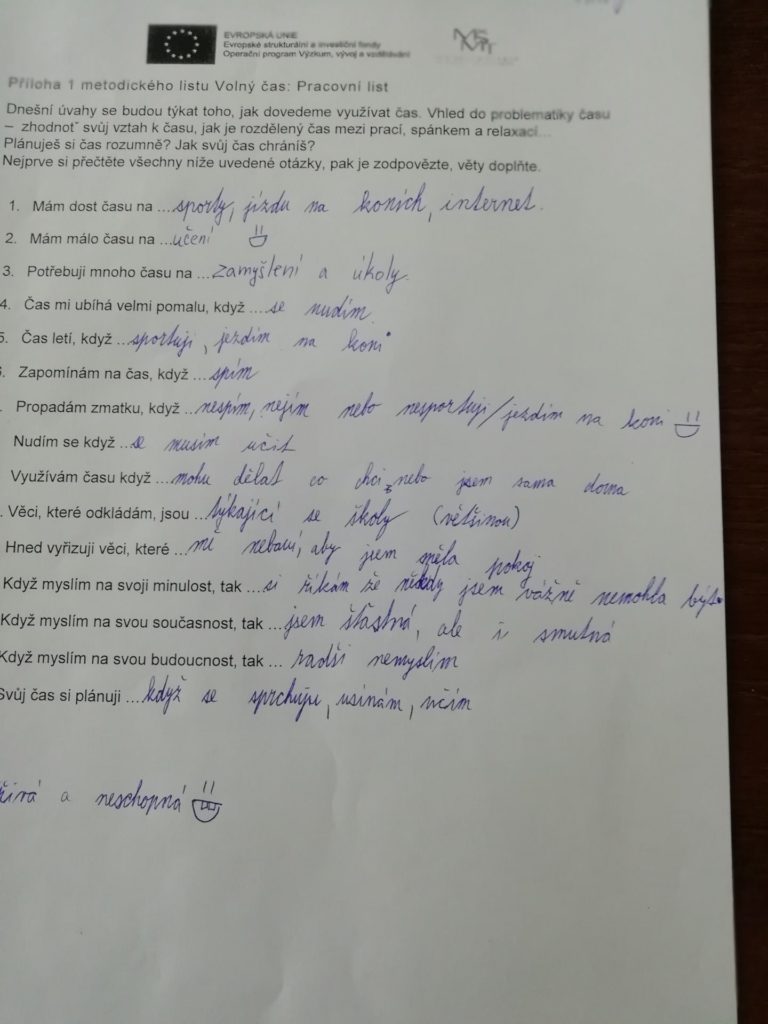 EVROPSKÁ UNIE
Evropské strukturální a investiční fondy
Operační program Výzkum, vývoj a vzdělávání
Příloha 1 metodického listu Volný čas: Pracovní list
Dnešní úvahy se budou týkat toho, jak dovedeme využívat čas. Vhled do problematiky času
– zhodnoť svůj vztah k času, jak je rozdělený čas mezi prací, spánkem a relaxací...
Plánuješ si čas rozumně? Jak svůj čas chráníš?
Nejprve si přečtěte všechny níže uvedené otázky, pak je zodpovězte, věty doplňte.
1. Mám dost času na ...sporty, jízdu na koních, internet.
2. Mám málo času na ...učení
3. Potřebuji mnoho času na ...zamyšlení a úkoly.
4. Čas mi ubíhá velmi pomalu, když ....se nudím.
5. Čas letí, když ...sportuji, jezdím na koni
6. Zapomínám na čas, když ...spím
. Propadám zmatku, když ..nespím, nejím nebo nesportuji/jezdím na koni
Nudím se když ...se musím učit
Využívám času když ....mohu dělat co chci, nebo jsem sama doma
. Věci, které odkládám, jsou ...týkající se školy (většinou)
Hned vyřizuji věci, které ...mě nebaví, aby jsem měla pokoj
Když myslím na svoji minulost, tak ...si říkám že někdy jsem vážně nemohla být
Když myslím na svou současnost, tak ...jsem šťastná, ale i smutná
Když myslím na svou budoucnost, tak ... radši nemyslím
Svůj čas si plánuji ....když se sprchuju, usínám, učím
a neschopná